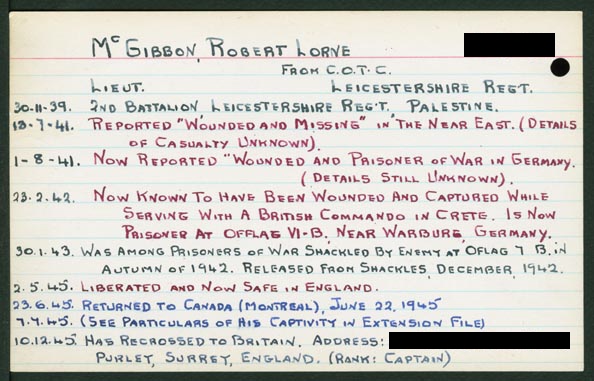 McGIBBON, ROBERT LORNE
FROM C.O.T.C.
LIEUT. LEICESTERSHIRE REGT.
30.11.39. 2ND BATTALION LEICESTERSHIRE REG'T. PALESTINE.
13-7-41. REPORTED "WOUNDED AND MISSING" IN THE NEAR EAST. (DETAILS
OF CASUALTY UNKNOWN).
1-8-41. NOW REPORTED "WOUNDED AND PRISONER OF WAR IN GERMANY.
(DETAILS STILL UNKNOWN).
23.2.42. NOW KNOWN TO HAVE BEEN WOUNDED AND CAPTURED WHILE
SERVING WITH A BRITISH COMMANDO IN CRETE. IS NOW
PRISONER AT OFFLAG VI-B, NEAR WARBURG, GERMANY.
30.1.43. WAS AMONG PRISONERS OF WAR SHACKLED BY ENEMY AT OFLAG 7 B. IN
AUTUMN OF 1942. RELEASED FROM SHACKLES, DECEMBER, 1942.
2.5.45. LIBERATED AND NOW SAFE IN ENGLAND.
23.6.45. RETURNED TO CANADA (MONTREAL), JUNE 22, 1945
7.7.45. (SEE PARTICULARS OF HIS CAPTIVITY IN EXTENSION FILE)
10.12.45. HAS RECROSSED TO BRITAIN. ADDRESS:
PURLEY, SURREY, ENGLAND. (RANK: CAPTAIN)